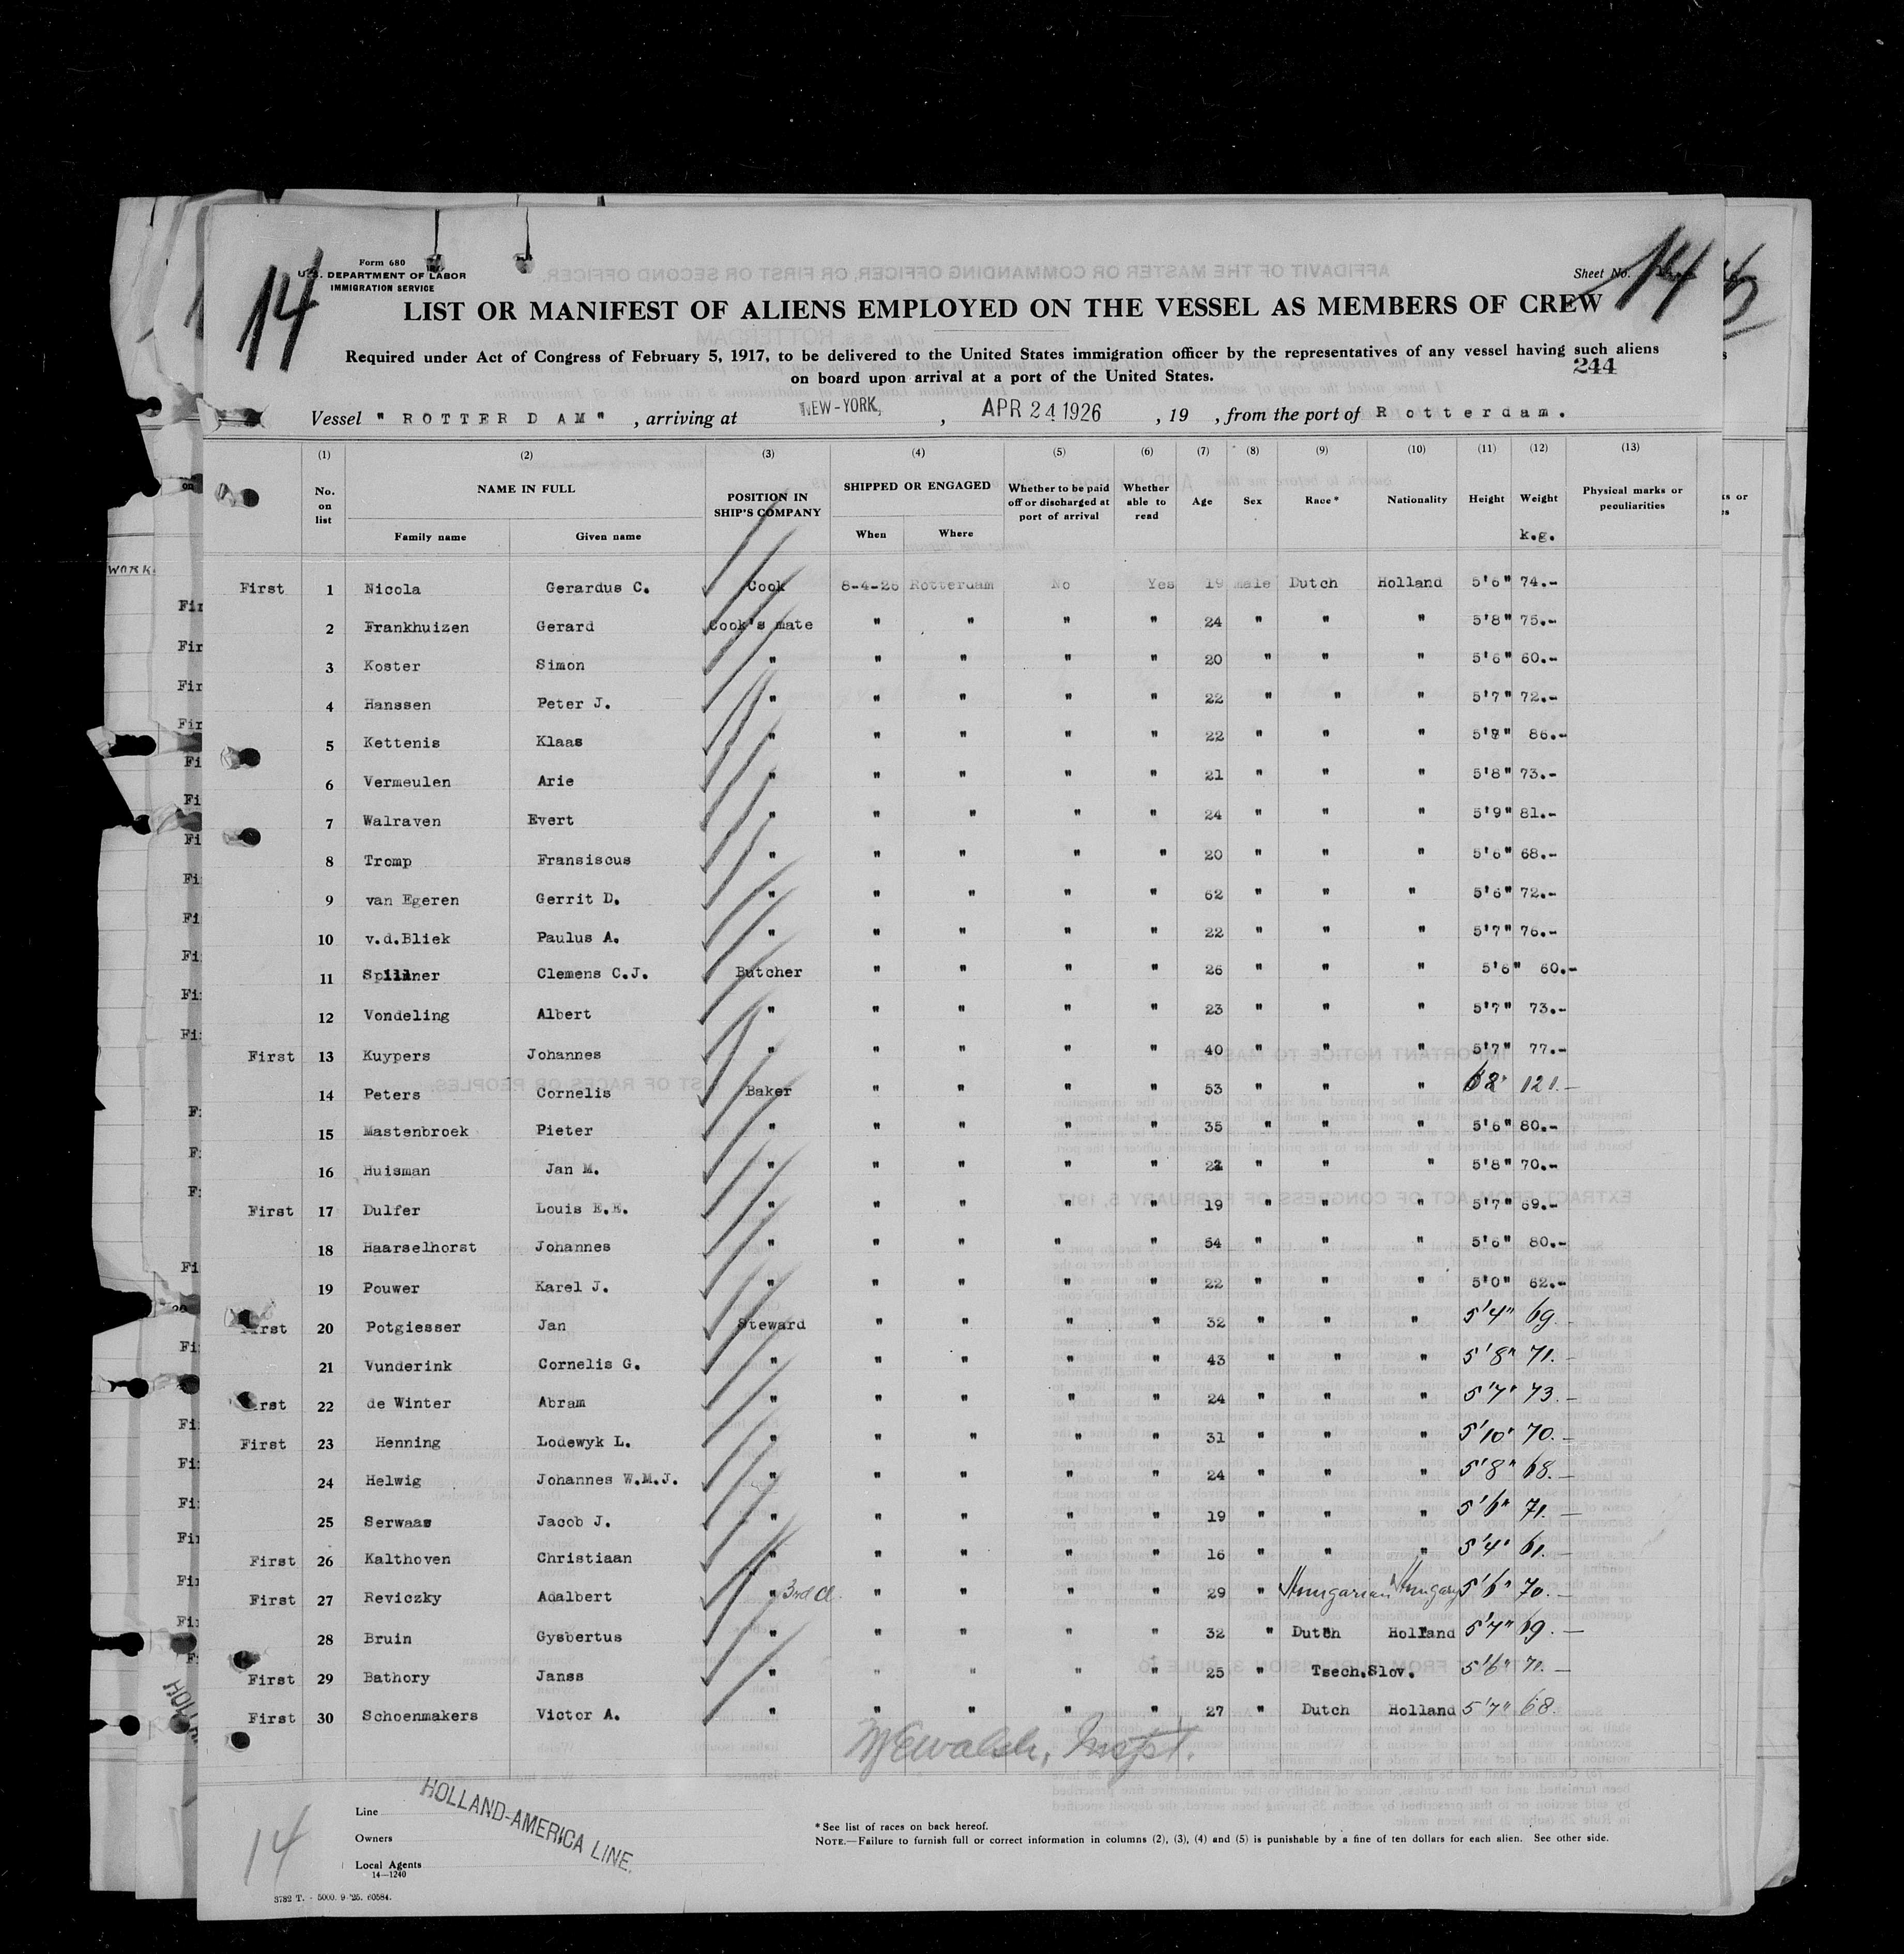 14
Form 680
U.S. DEPARTMENT OF LABOR
IMMIGRATION SERVICE
Sheet No. 14
LIST OR MANIFEST OF ALIENS EMPLOYED ON THE VESSEL AS MEMBERS OF CREW
Required under Act of Congress of February 5, 1917, to be delivered to the United States immigration officer by the representatives of any vessel having such aliens
on board upon arrival at a port of the United States.
244
Vessel "ROTTERDAM", arriving at NEW-YORK, , APR 24 1926 , 19 , from the port of Rotterdam.
(1) (2) (3) (4) (5) (6) (7) (8) (9) (10) (11) (12) (13)
No. on list NAME IN FULL Family name Given name POSITION IN SHIP'S COMPANY SHIPPED OR ENGAGED When Where Whether to be paid off or discharged at port of arrival Whether able to read Age Sex Race* Nationality Height Weight k.g. Physical marks or peculiarities
First 1 Nicola Gerardus C. Cook 8-4-26 Rotterdam No Yes 19 male Dutch Holland 5'6" 74.-
2 Frankhuizen Gerard Cook's mate " " " " 24 " " " 5'8" 75.-
3 Koster Simon " " " " " 20 " " " 5'6" 60.-
4 Hanssen Peter J. " " " " " 22 " " " 5'7" 72.-
5 Kettenis Klaas " " " " " 22 " " " 86.-
6 Vermeulen Arie " " " " " 21 " " " 5'8" 73.-
7 Walraven Evert " " " " " 24 " " " 5'9" 81.-
8 Tromp Fransiscus " " " " " 20 " " " 5'6" 68.-
9 van Egeren Gerrit D. " " " " " 62 " " " 5'6" 72.-
10 v.d.Bliek Paulus A. " " " " " 22 " " " 5'7" 76.-
11 Spillner Clemens C.J. Butcher " " " " 26 " " " 5'6" 60.-
12 Vondeling Albert " " " " " 23 " " " 5'7" 73.-
First 13 Kuypers Johannes " " " " " 40 " " " 5'7" 77.-
14 Peters Cornelis Baker " " " " 53 " " " 121.-
15 Mastenbroek Pieter " " " " " 35 " " " 5'6" 80.-
16 Huisman Jan M. " " " " " " " " 5'8" 70.-
First 17 Dulfer Louis E.E. " " " " " 19 " " " 5'7" 69.-
18 Haarselhorst Johannes " " " " " 54 " " " 5'6" 80.-
19 Pouwer Karel J. " " " " " 22 " " " 5'0" 62.-
First 20 Potgiesser Jan Steward " " " " 32 " " " 5'4" 69.
21 Vunderink Cornelis G. " " " " " 43 " " " 5'8" 71.-
First 22 de Winter Abram " " " " " 24 " " " 5'7" 73.-
First 23 Henning Lodewyk L. " " " " " 31 " " " 5'10" 70.-
24 Helwig Johannes W.M.J. " " " " " 24 " " " 5'8" 68.-
25 Serwaas Jacob J. " " " " " 19 " " " 5'6" 71.-
First 26 Kalthoven Christiaan " " " " " 16 " " " 5'4" 61.-
First 27 Reviczky Adalbert " 3rd Cl. " " " " 29 " Hungarian Hungary 5'6" 70.-
28 Bruin Gysbertus " " " " " 32 " Dutch Holland 5'4" 69.-
First 29 Bathory Janss " " " " " 25 " Tsech.Slov. 5'6" 71.-
First 30 Schoenmakers Victor A. " " " " " 27 " Dutch Holland 5'7" 68.
Walsh, Inspt.
Line HOLLAND-AMERICA LINE.
Owners
Local Agents
14—1240
*See list of races on back hereof.
NOTE.—Failure to furnish full or correct information in columns (2), (3), (4) and (5) is punishable by a fine of ten dollars for each alien. See other side.
14
3782 T. - 5000. 9-'25. 60584.